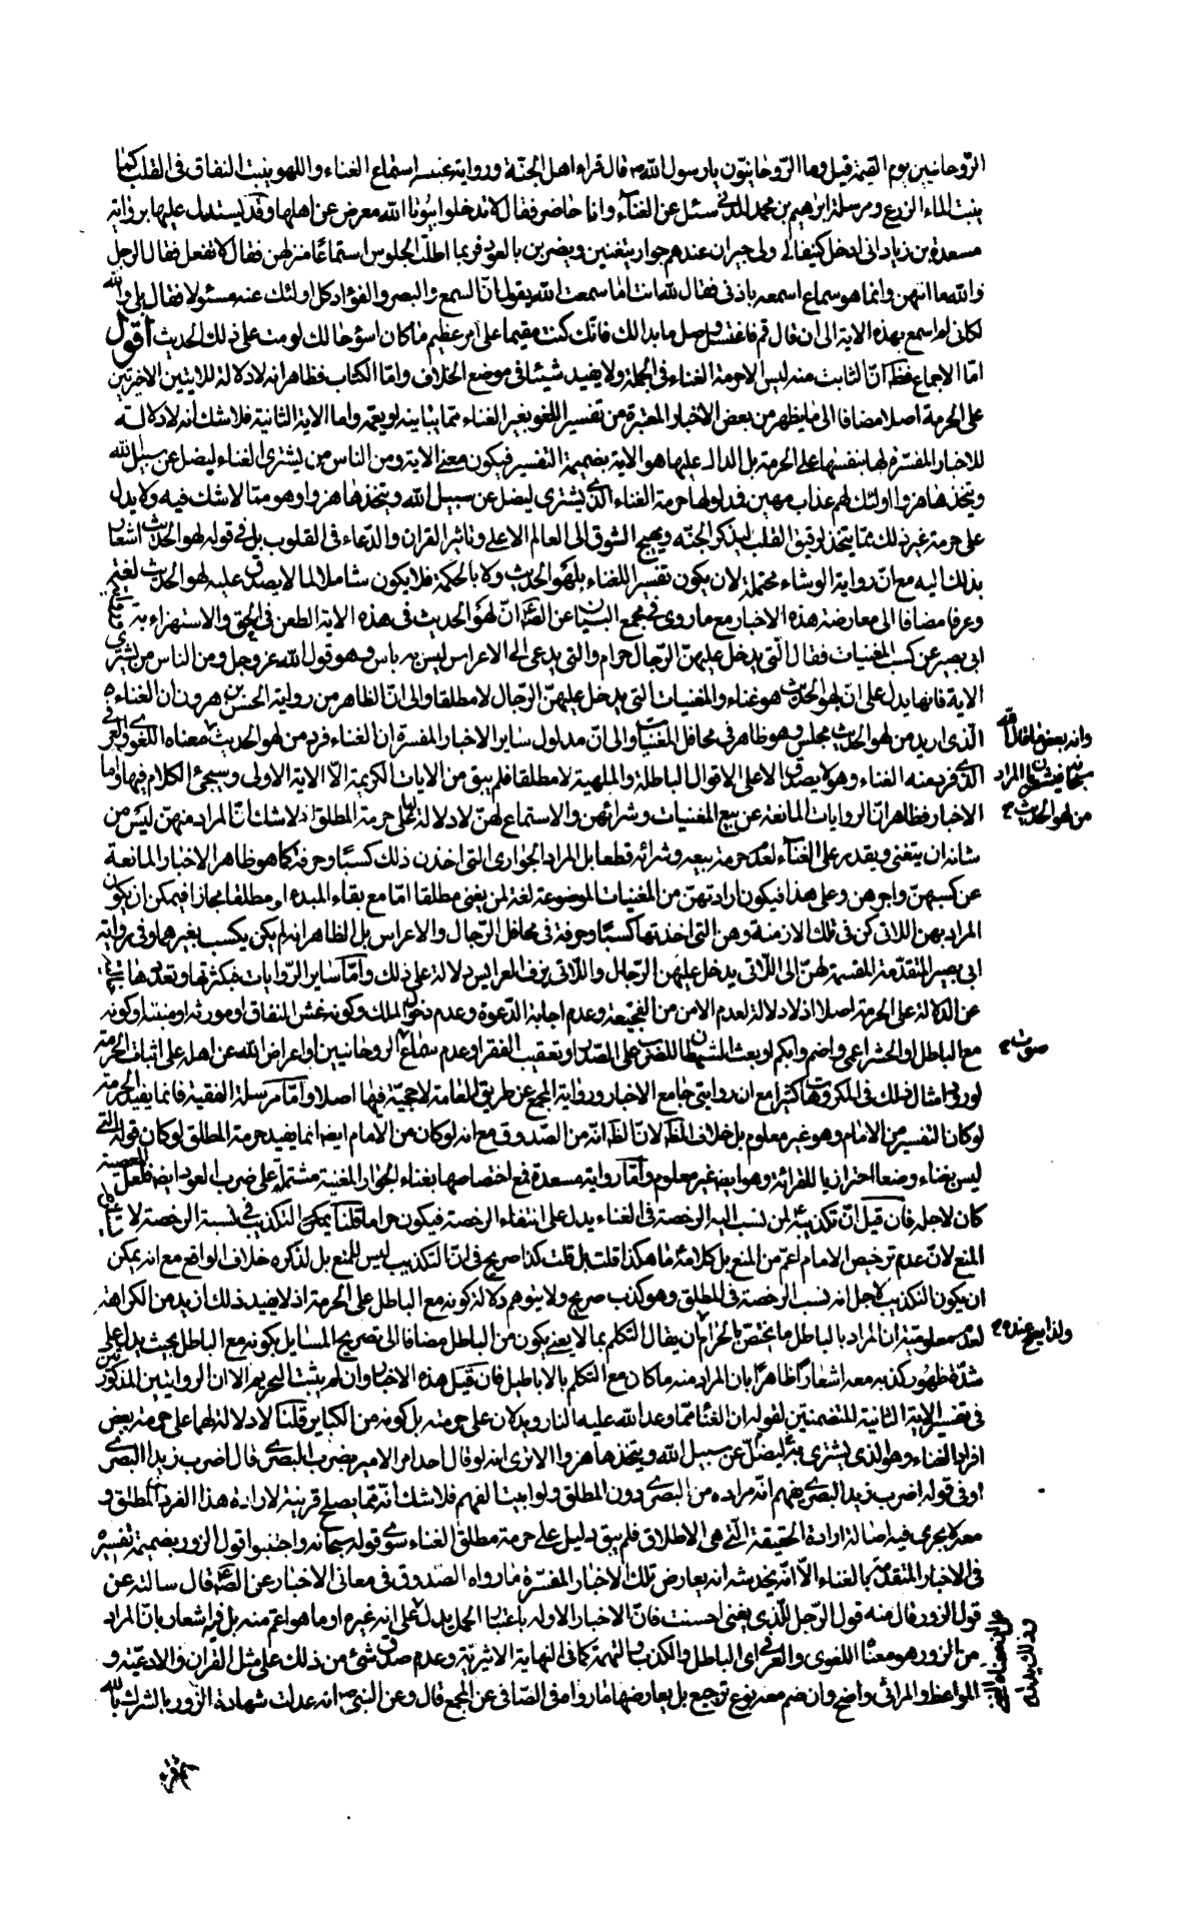 الرّوحانيين يوم القيمة قيل وما الرّوحانيّون يا رسول الله ص قال قراء اهل الجنّة ورواية عنبسه استماع الغناء واللهو ينبت النفاق فى القلب كما
ينبت الماء الزرع ومرسلة ابرهيم بن محمد المدنى سئل عن الغناء وانا حاضر فقال لا تدخلوا بيوتا الله معرض عن اهلها وقد يستدل عليها برواية
مسعدة بن زياد انى ادخل كنيفا لى ولى جيران عندهم جوار يتغنين ويضربن بالعود فربما اطلت الجلوس استماعا منى لهن فقال لا تفعل فقال الرجل
والله ما اتيهن وانما هو سماع اسمعه باذنى فقال لله انت اما سمعت الله يقول انّ السمع والبصر والفؤاد كل اولئك عنه مسئولا فقال بلى والله
لكانى لم اسمع بهذه الاية الى ان قال قم فاغتسل وصل ما بدا لك فانّك كنت مقيما على امر عظيم ما كان اسوء حالك لو مت على ذلك الحديث اقول
امّا الاجماع فظ انّ الثابت منه ليس الا حرمة الغناء فى الجملة ولا يفيد شيئا فى موضع الخلاف وامّا الكتاب فظاهر انه لا دلالة للايتين الاخرتين
على الحرمة اصلا مضافا الى ما يظهر من بعض الاخبار المعتبرة من تفسير اللغو بغير الغناء ممّا يباينه او يعمّه واما الاية الثانية فلا شك انه لا دلالة
للاخبار المفسّرة لها بنفسها على الحرمة بل الدال عليها هو الاية بضميمة التفسير فيكون معنى الاية ومن الناس من يشترى الغناء ليضل عن سبيل الله
ويتخذها هزوا اولئك لهم عذاب مهين فمدلولها حرمة الغناء الذى يشترى ليضل عن سبيل الله ويتخذها هزوا وهو مما لا شك فيه ولا يدل
على حرمة غير ذلك ممّا يتخذ لرقيق القلب لتذكر الجنّة ويهيج الشوق الى العالم الاعلى وتاثير القران والدّعاء فى القلوب بل فى قوله لهو الحديث اشعار
بذلك اليه مع انّ رواية الوشاء محتملة لان يكون تفسير اللغناء بلهو الحديث ولا بالحكمة فلا يكون شاملا لما لا يصدق عليه لهو الحديث لغة
وعرفا مضافا الى معارضة هذه الاخبار مع ما روى فى مجمع البيان عن الصّ انّ لهو الحديث فى هذه الاية الطعن فى الحق والاستهزاء به
ابى بصير عن كسب المغنيات فقال الّتى يدخل عليهنّ الرّجال حرام والتى يدعى الى الاعراس ليس به باس وهو قول الله عز وجل ومن الناس من يشترى
الاية فانها يدل على انّ لهو الحديث هو غناء والمغنيات التى يدخل عليهنّ الرّجال لا مطلقا والى انّ الظاهر من رواية الحسن بن هرون ان الغناء
الّذى اريد من لهو الحديث مجلس وهو ظاهر فى محافل المغنيات والى انّ مدلول ساير الاخبار المفسرة ان الغناء فرد من لهو الحديث بمعناه اللغوى والعرفى
الذى فرد منه الغناء وهو لا يصدق الا على الاقوال الباطلة والملهية لا مطلقا فلم يبق من الايات الكريمة الّا الاية الاولى وسيجئ الكلام فيها واما
الاخبار فظاهر انّ الروايات المانعة عن بيع المغنيات وشرائهن والاستماع لهنّ لا دلالة لها على حرمة المطلق اذ لا شك انّ المراد منهنّ ليس من
شانه ان يتغنى ويقدر على الغناء لعدم حرمة بيعه وشرائه قطعا بل المراد الجوارى التى اخذن ذلك كسبًا وحرفة كما هو ظاهر الاخبار المانعة
عن كسبهنّ واجرهن وعلى هذا فيكون ارادتهنّ من المغنيات الموضوعة لغة لمن يغنى مطلقا امّا مع بقاء المبدء او مطلقا مجازا فيمكن ان يكون
المراد بهن اللاتى كن فى تلك الازمنة وهن التى اخذتها كسبًا وحرفة فى محافل الرّجال والاعراس بل الظاهر انه لم يكن يكسب بغيرهما وفى رواية
ابى بصير المتقدّمة المقسمة لهنّ الى اللّاتى يدخل عليهن الرّجال واللّاتى يزف العرايس دلالة على ذلك وامّا ساير الرّوايات فبكثرتها وتعدّدها
عن الدلالة على الحرمة اصلا اذ لا دلالة لعدم الامن من الفجيعة وعدم اجابة الدّعوة وعدم دخول الملك وكونه عش النفاق او مورثه او منبته او كونه
مع الباطل او الحشر اعمى واصم وابكم او بعث الشيطان للضرب على الصّدر او تعقيب الفقر او عدم سماع الروحانيين او اعراض الله عن اهله على اثبات الحرمة
لورود امثال ذلك فى المكروهات كثيرا مع ان روايتى جامع الاخبار ورواية المجمع عن طريق العامة لا حجيّة فيها اصلا وامّا مرسلة الفقيه فانما يفيد الحرمة
لو كان التفسير من الامام وهو غير معلوم بل خلاف الظ لانّ الظ انّه من الصّدوق مع انه لو كان من الامام ايضا انما يفيد حرمة المطلق لو كان قوله التى
ليس بغناء وضعا احترازيا للقرائة وهو ايضا غير معلوم وامّا رواية مسعدة فمع اختصاصها بغناء الجوار المغنية مشتملة على ضرب العود ايضا فلعل المعصية
كان لاجله فان قيل انّ تكذيبه لمن نسب اليه الرخصة فى الغناء يدل على انتفاء الرخصة فيكون حراما قلنا يمكن التكذيب فى نسبة الرخصة لا
المنع لانّ عدم ترخيص الامام اعمّ من المنع بل كلامه ما هكذا قلت بل قلت كذا صريح فى انّ التكذيب ليس للمنع بل لذكره خلاف الواقع مع انه يمكن
ان يكون التكذيب لاجل انه نسب الرخصة فى المطلق وهو كذب صريح ولا يتوهم دلالة كونه مع الباطل على الحرمة اذ لا يفيد ذلك ازيد من الكراهة
لعدم معلومية ان المراد بالباطل ما يختص بالحرام لان يقال التكلم بما لا يعنى يكون من الباطل مضافا الى تصريح المسايل بكونه مع الباطل بحيث يدل على
شدّة ظهور كذبه معه اشعارا ظاهرا بان المراد منه ما كان مع التكلم بالاباطيل فان قيل هذه الاخبار وان لم يثبت التحريم الا ان الروايتين المذكورتين
فى تفسير الاية الثانية المتضمنتين لقوله ان الغناء ممّا وعد الله عليه النار ويدلان على حرمته بل كونه من الكباير قلنا لا دلالة لهما على حرمة بعض
افراد الغناء وهو الذى يشترى به ليضلّ عن سبيل الله ويتخذها هزوا الا ترى انه لو قال احد امر الامير بضرب البصرى قال اضرب زيدا البصرى
او فى قوله اضرب زيدا البصرى يفهم انّه مراده من البصرى دون المطلق ولو ابيت الفهم فلا شك انّه ممّا يصلح قرينة لارادة هذا الفرد من المطلق و
معه لا يجرى فيه اصالة ارادة الحقيقة الّتى هى الاطلاق فلم يبق دليل على حرمة مطلق الغناء سوى قوله سبحانه واجتنبوا قول الزور بضميمة تفسيره
فى الاخبار المتقدمة بالغناء الّا انّه يخدشه انه يعارض تلك الاخبار المفسّرة ما رواه الصّدوق فى معانى الاخبار عن الصّ قال سالته عن
قول الزور قال منه قول الرّجل للّذى يغنى احسنت فانّ الاخبار الاوله باعتبار الحمل يدل على انه غيره او ما هو اعمّ منه بل فيه اشعار بانّ المراد
من الزور هو معناه اللغوى والعرفى اى الباطل والكذب والتهمة كما فى النهاية الاثيرية وعدم صدق شئ من ذلك على مثل القران والادعية و
المواعظ والمراثى واضح وان ضم معه نوع ترجيع بل يعارضها ما رواه فى الصّافى عن المجمع قال وعن النبى ص انه عدلت شهادة الزور بالشرك بالله
وانه بعض ما قال
سبحانه فيشعر بان المراد
من لهو الحديث م
صوت م
ولذا يصح عنده م